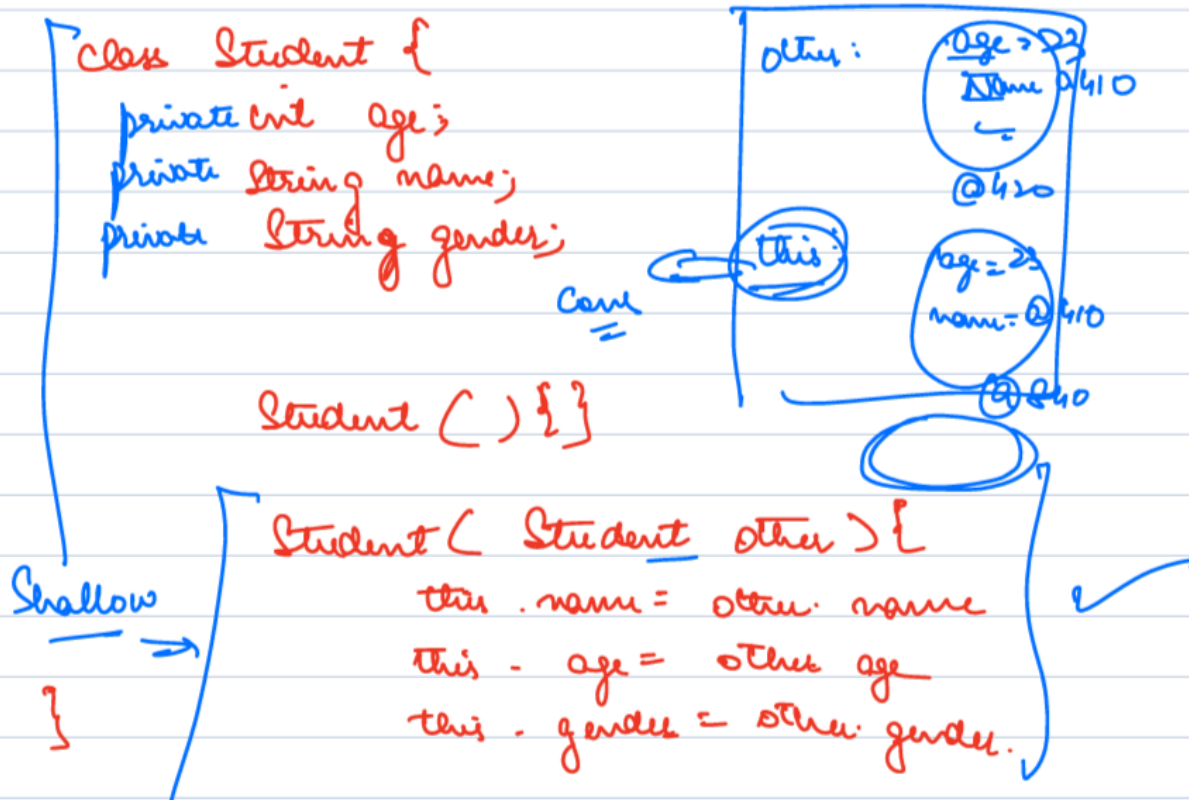 class Student {
private int age;
private String name;
private String gender;
Student ( ) { }
Student ( Student other ) {
this . name = other . name
this . age = other age
this . gender = other . gender .
}
Shallow
other :
age = 23
Name @410
@420
this :
age = 23
name = @410